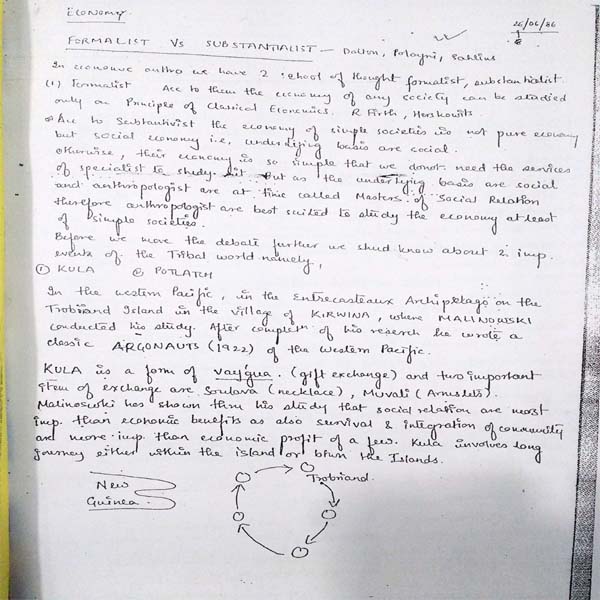 ECONOMY
26/06/86
FORMALIST VS SUBSTANTIALIST - Dalton, Polayni, Sahlins
In economic anthro we have 2 school of thought formalist, substantialist.
(1) Formalist Acc to them the economy of any society can be studied
only on Principle of Classical Economics. R Firth, Herskovits
Acc to Substantivist the economy of simple societies is not pure economy
but social economy i.e, underlying basis are social.
otherwise, their economy is so simple that we donot need the services
of specialist to study it. But as the underlying basis are social
and anthropologist are at time called Masters of Social Relation
therefore anthropologist are best suited to study the economy atleast
of simple societies.
Before we move the debate further we shud know about 2 imp.
events of the Tribal world namely,
① KULA ② POTLATCH
In the western Pacific, in the Entrecasteaux Archipelago on the
Trobriand Island in the village of KIRWINA, where MALINOWSKI
conducted his study. After complen of his reserch he wrote a
classic ARGONAUTS (1922) of the Western Pacific.
KULA is a form of vaygua. (gift exchange) and two important
item of exchange are Soulava (necklace), Muvali (Armslets).
Malinowski has shown thru his study that social relation are most
imp. than economic benefits as also survival & integration of community
are more imp. than economic profit of a few. Kula involves long
journey either within the island or btwn the Islands.
New
Guinea
Trobriand